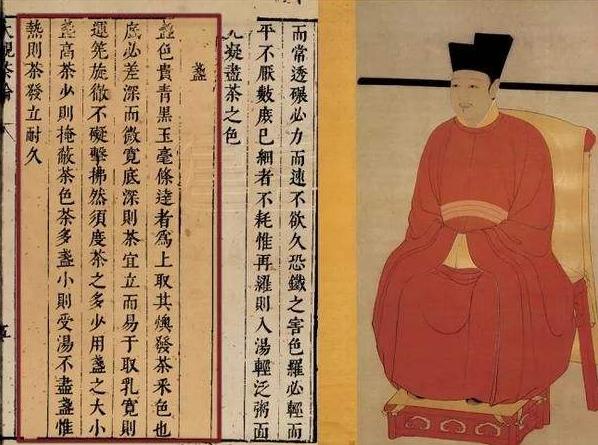 而常透碾必力而速不欲久恐鐵之害色羅必輕而
平不厭數庶已細者不耗惟再羅則入湯輕泛粥面
凝盡茶之色
盞
盞色貴青黑玉毫條達者為上取其燠發茶采色也
底必差深而微寬底深則茶宜立而易于取乳寬則
運筅旋徹不礙擊拂然須度茶之多少用盞之大小
盞高茶少則掩蔽茶色茶多盞小則受湯不盡盞惟
熱則茶發立耐久
大觀茶論
五